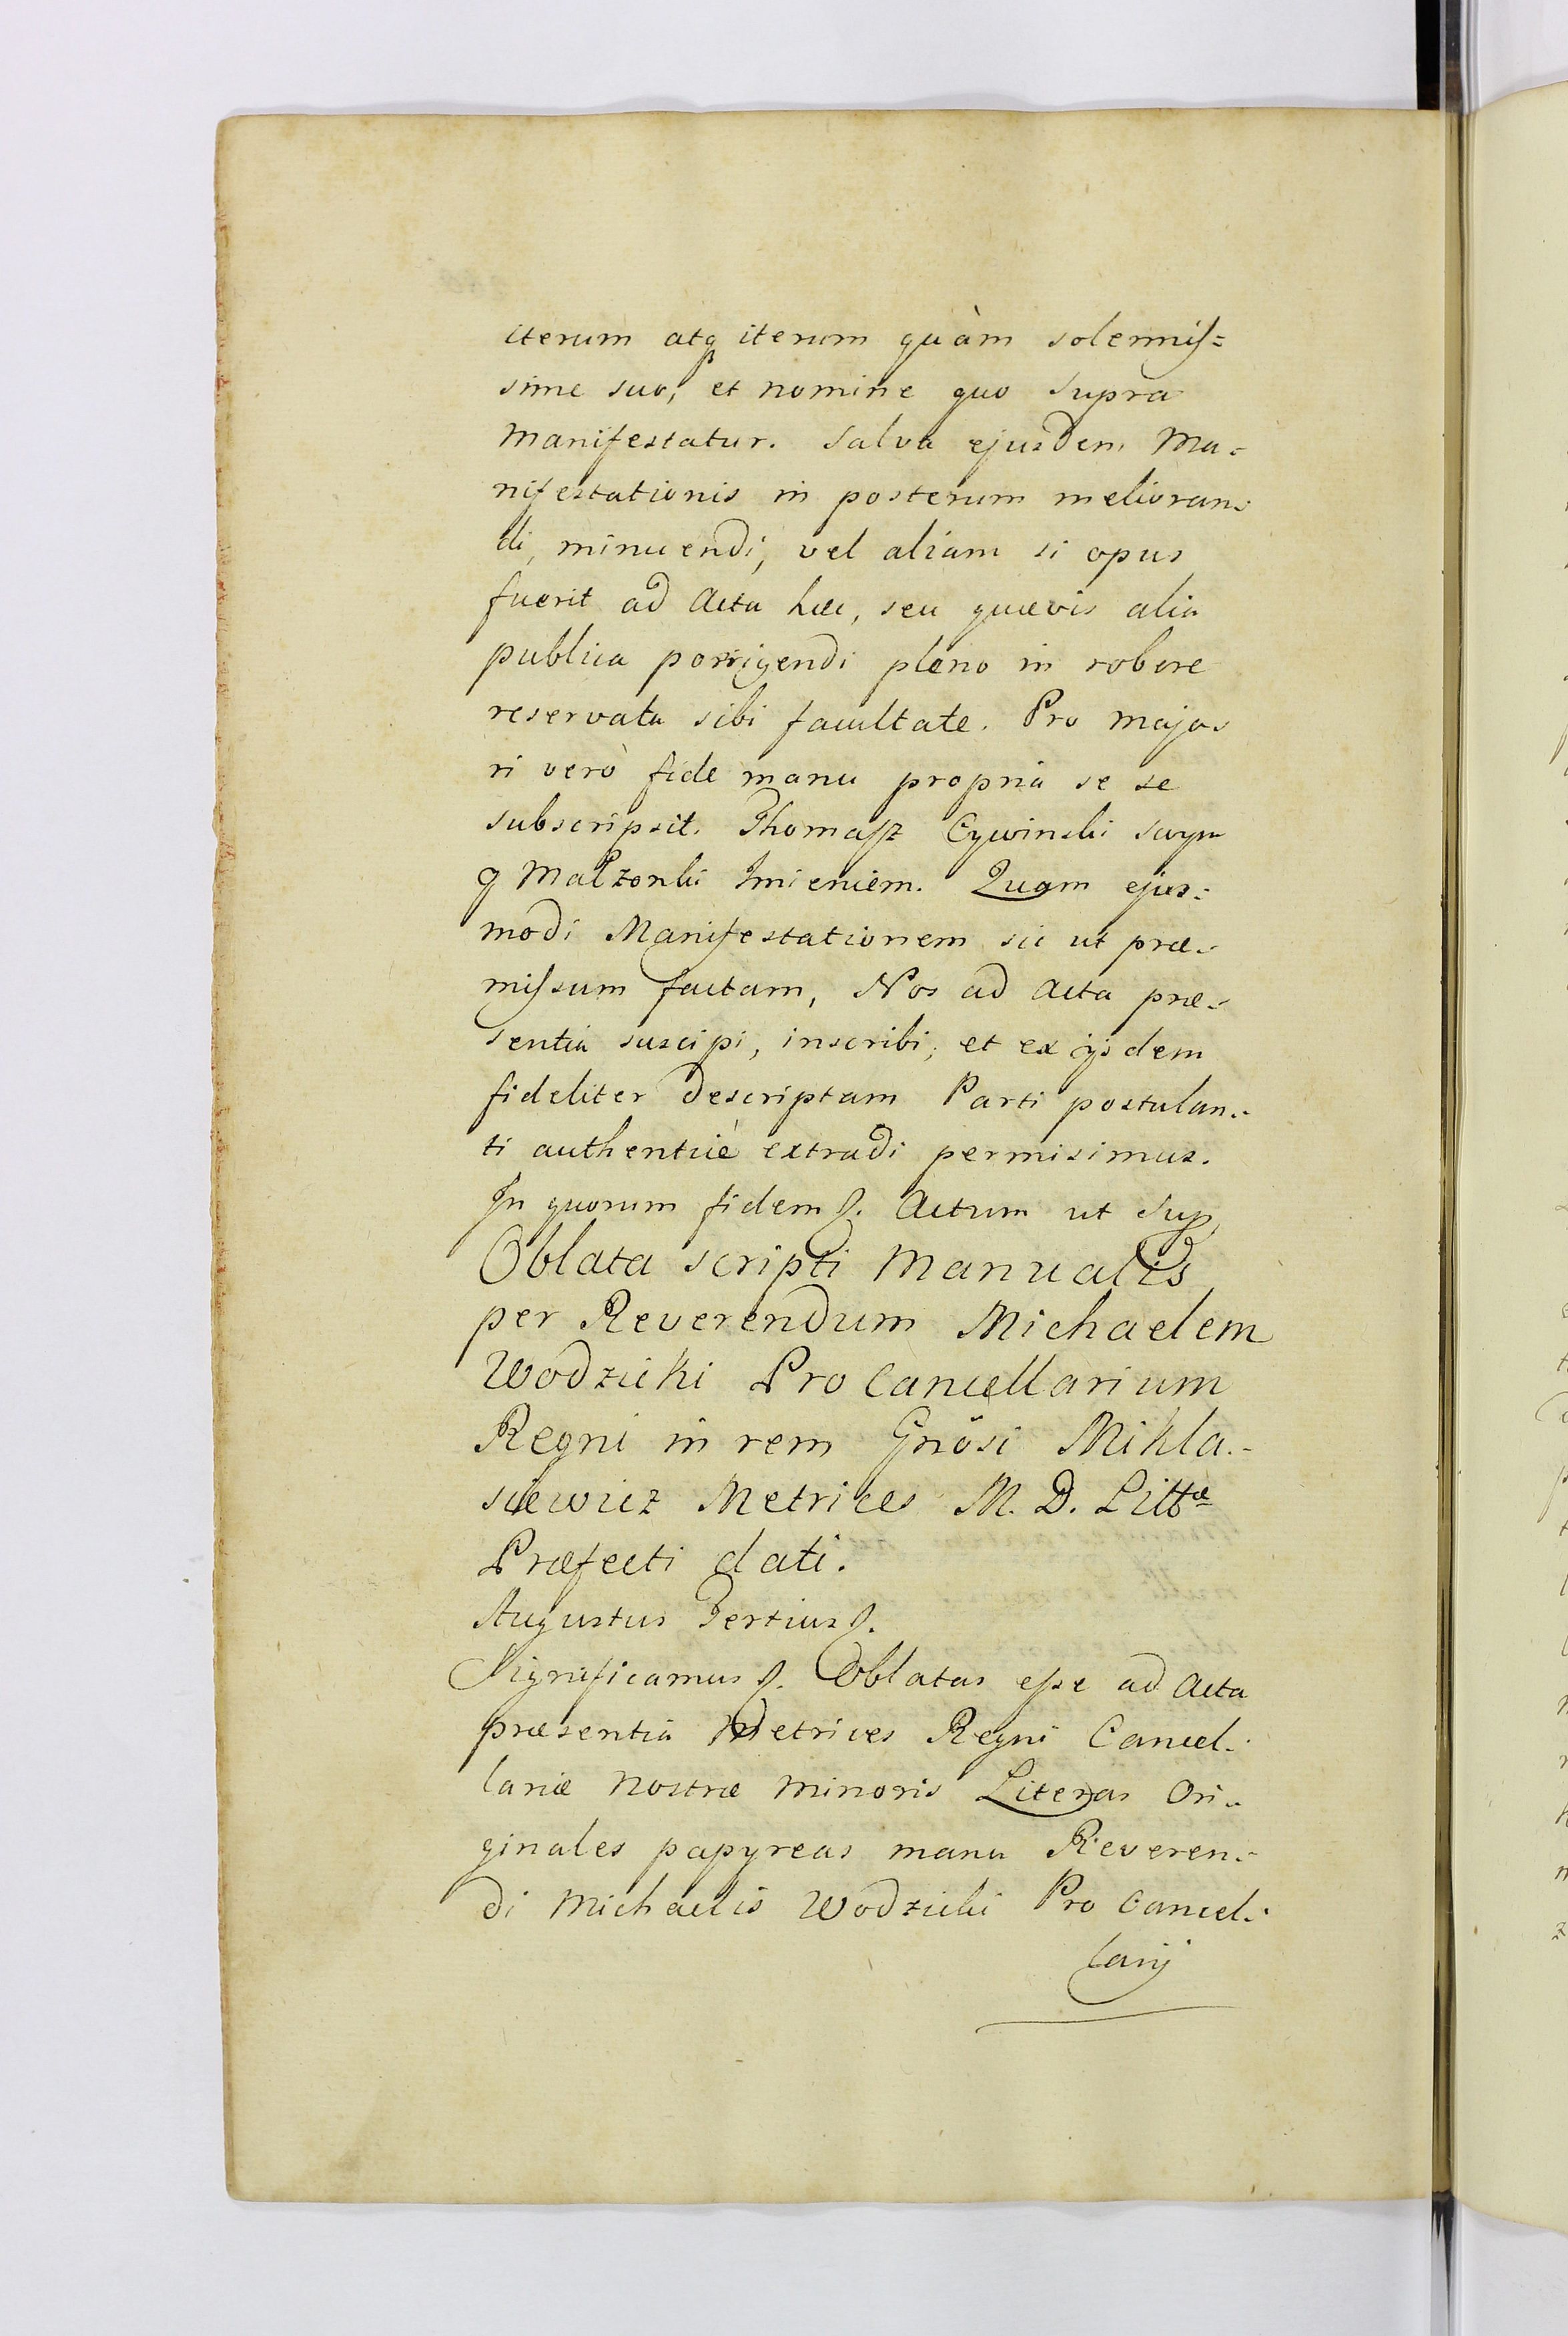 iterum atq iterum quàm solennis=
sime suo, et nomine quo supra
manifestatur. Salva ejusdem Ma=
nifestationis in posterum melioran=
di, minuendi, vel aliam si opus
fuerit ad Acta hæc, seu quævis alia
publica porrigendi pleno in robore
reservata sibi facultate. Pro majo=
ri verò fide manu propria se se
subscripsit. Thomasz Cywinski swym
y Małzonki Imieniem. Quam ejus=
modi Manifestationem sic ut præ=
missum factam, Nos ad Acta præ=
sentia suscipi, inscribi, et ex ijsdem
fideliter descriptam Parti postulan=
ti authenticè extradi permisimus.
In quorum fidem &. Actum ut Sup
Oblata scripti Manualis
per Reverendum Michaelem
Wodzicki Pro Cancellarium
Regni in rem Gnōsi Mikla=
siewicz Metrices M. D. Littæ
Præfecti dati.
Augustus Tertius &.
Significamus &. Oblatas esse ad Acta
præsentia Metrices Regni Cancel=
lariæ Nostræ Minoris Literas Ori=
ginales papyreas manu Reveren=
di Michaelis Wodzicki Pro Cancel=
larij